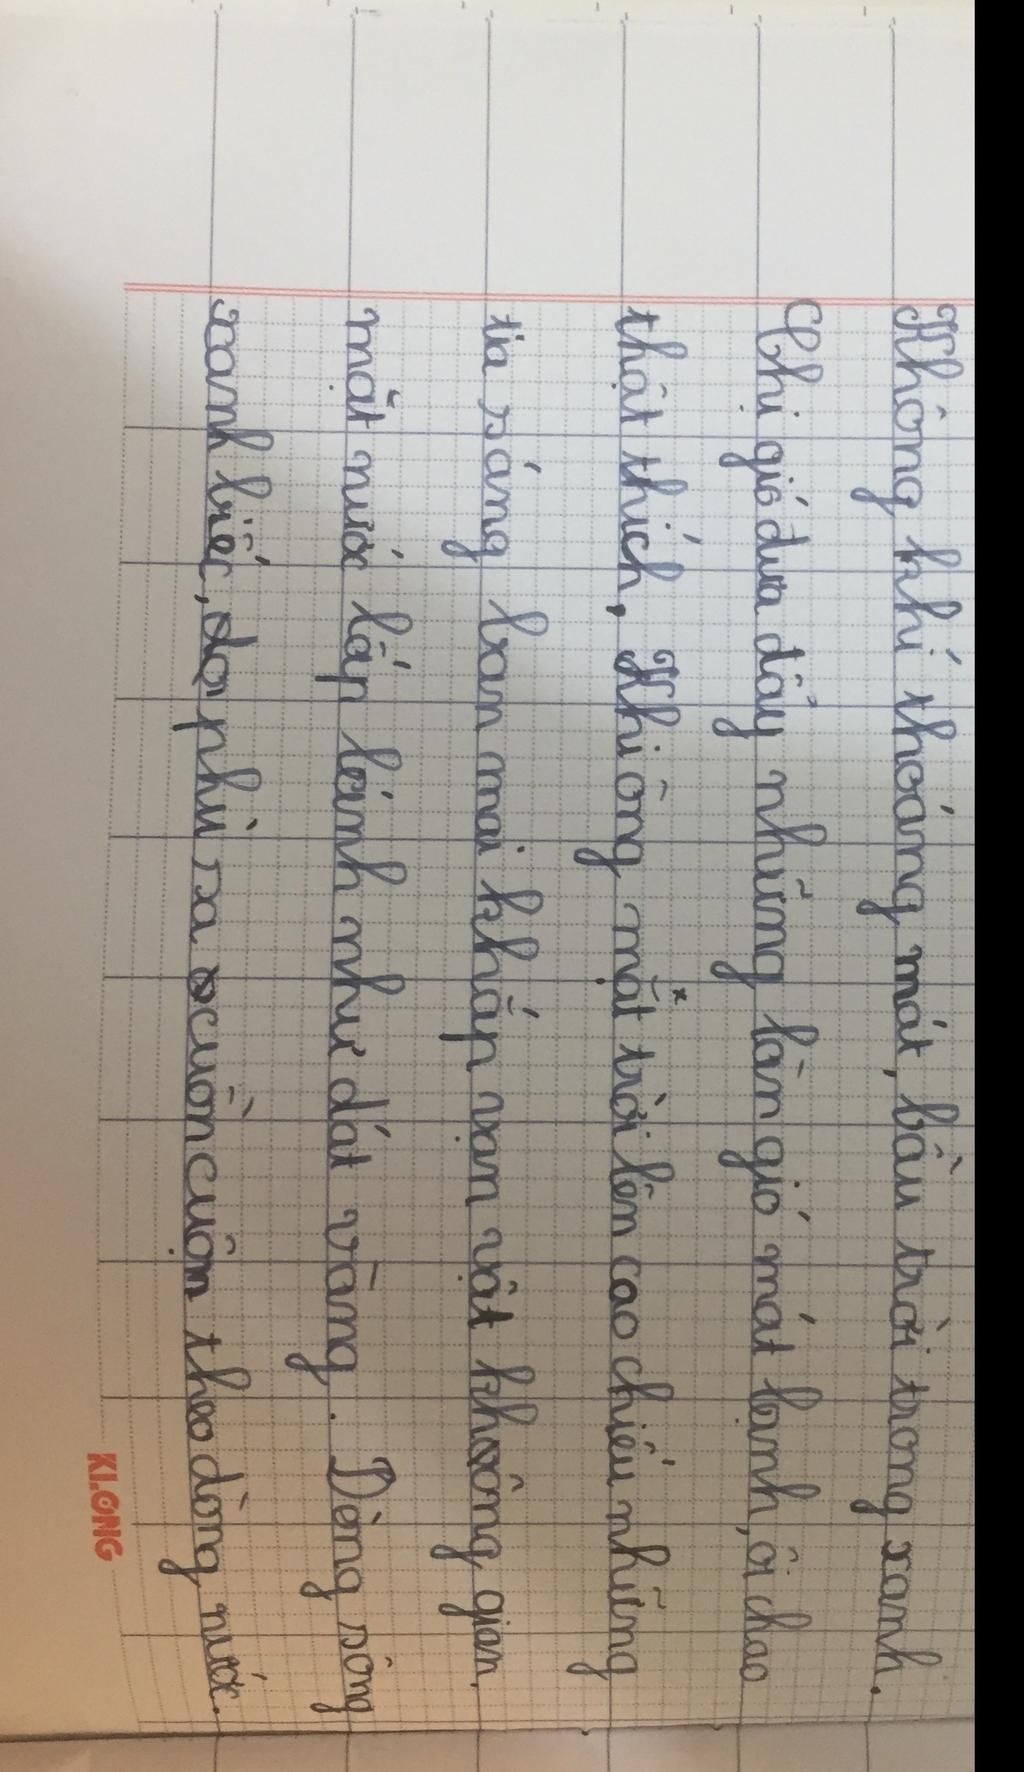 Không khí thoáng mát, bầu trời trong xanh.
Chị gió đưa đẩy những làn gió mát lạnh, ôi chao
thật thích. Khi ông mặt trời lên cao chiếu những
tia sáng ban mai khắp vạn vật không gian,
mặt nước lấp lánh như dát vàng. Dòng sông
xanh biếc, dọ phù sa cuồn cuộn theo dòng nước.
KLONG